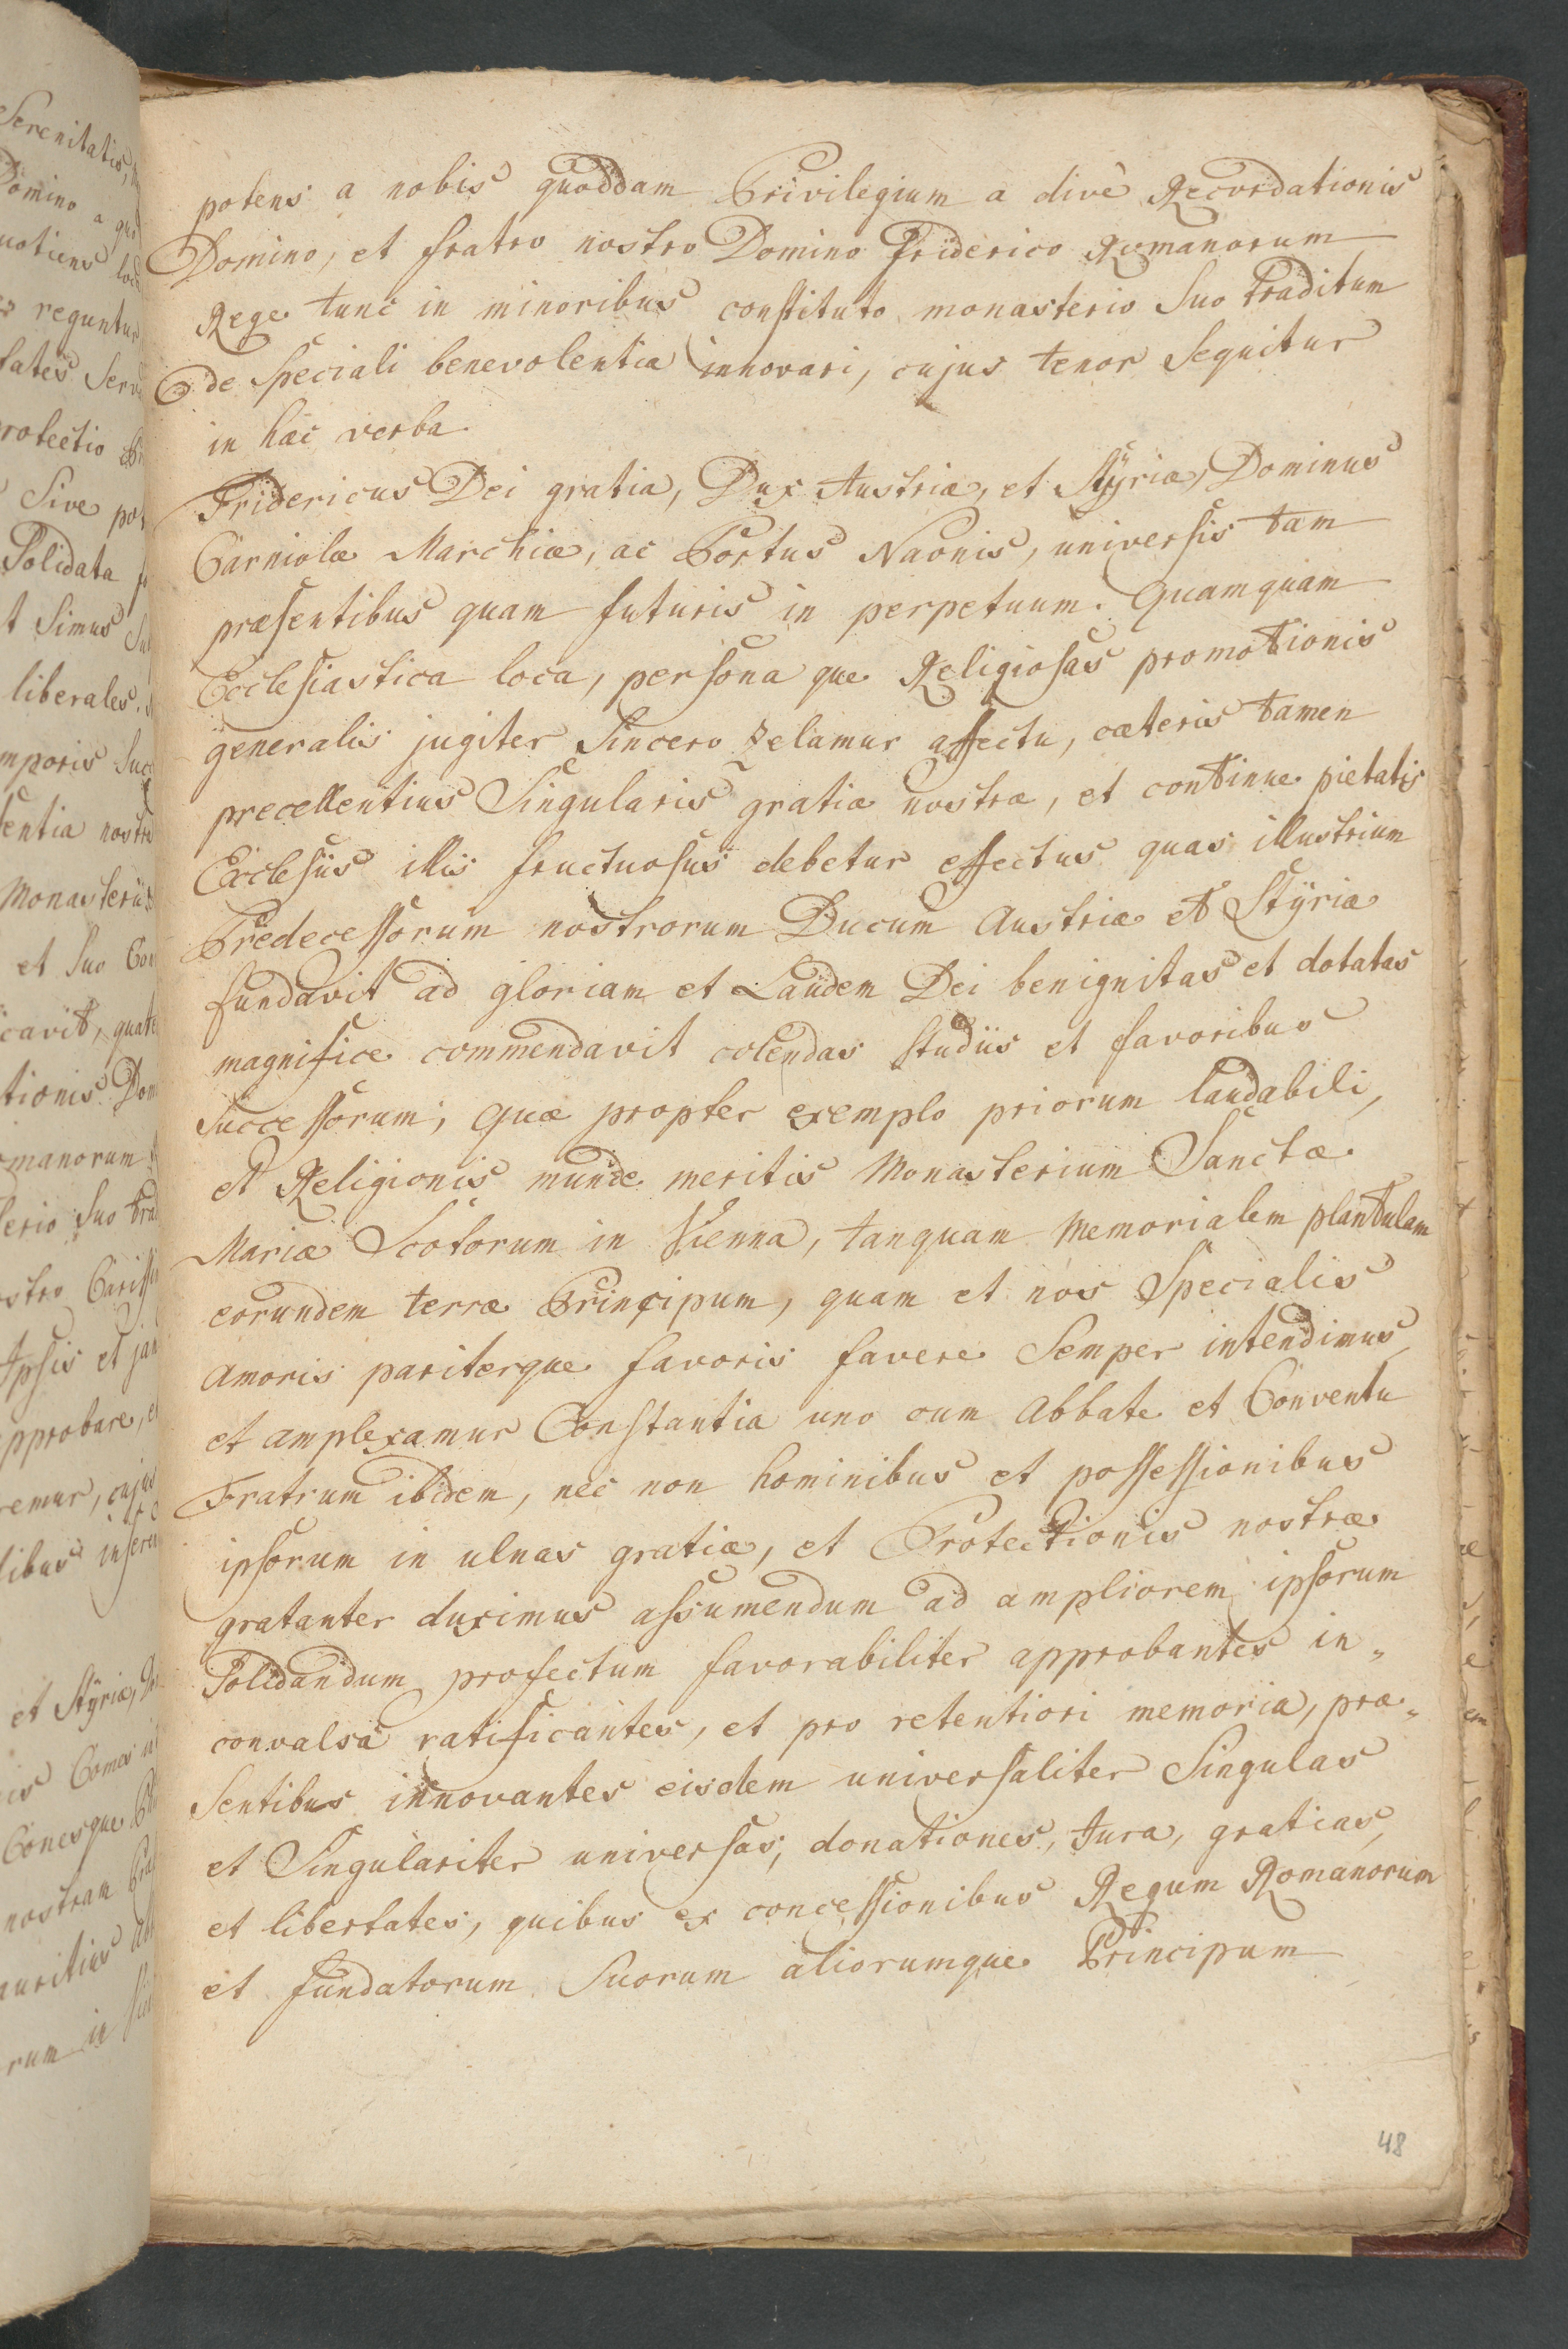 potens a nobis quoddam Privilegium a divè Recordationis
Domino, et fratro nostro Domino Friderico Romanorum
Rege tunc in minoribus constituto monasterio Suo traditum
de Speciali benevolentia innovari, cujus tenor Sequitur
in hæc verba.
Fridericus Dei gratia, Dux Austriæ, et Stÿriæ, Dominus
Carniolæ Marchiæ, ac Portus Naonis, universis tam
præsentibus quam futuris in perpetuum. Quamquam
Ecclesiastica loca, persona que Religiosas promotionis
generalis jugiter Sincero zelamur affectu, cæteris tamen
precellentius Singularis gratiæ nostræ, et continue pietatis
Ecclesiis illis fructuosus debetur effectus quas illustrium
Predecessorum nostrorum Ducum Austriæ et Stÿriæ
fundavit ad gloriam et Laudem Dei benignitas et dotatas
magnifice commendavit colendas studiis et favoribus
Successorum; quæ propter exemplo priorum laudabili,
et Religionis munde meritis Monasterium Sanctæ
Mariæ Scotorum in Vienna, tanquam Memorialem plantulam
eorundem terræ Principum, quam et nos Specialis
Amoris pariterque favoris favere Semper intendimus,
et amplexamur Constantia uno cum Abbate et Conventu
Fratrum ibidem, nec non hominibus et possessionibus
ipsorum in ulnas gratiæ, et Protectionis nostræ
gratanter duximus assumendum ad ampliorem ipsorum
Solidandum profectum favorabiliter approbantes in„
convalsa ratificantes, et pro retentiori memoria, præ„
Sentibus innovantes eisdem universaliter Singulas
et Singulariter universas, donationes, Jura, gratias,
et libertates, quibus ex concessionibus Regum Romanorum
et fundatorum Suorum aliorumque Principum
48